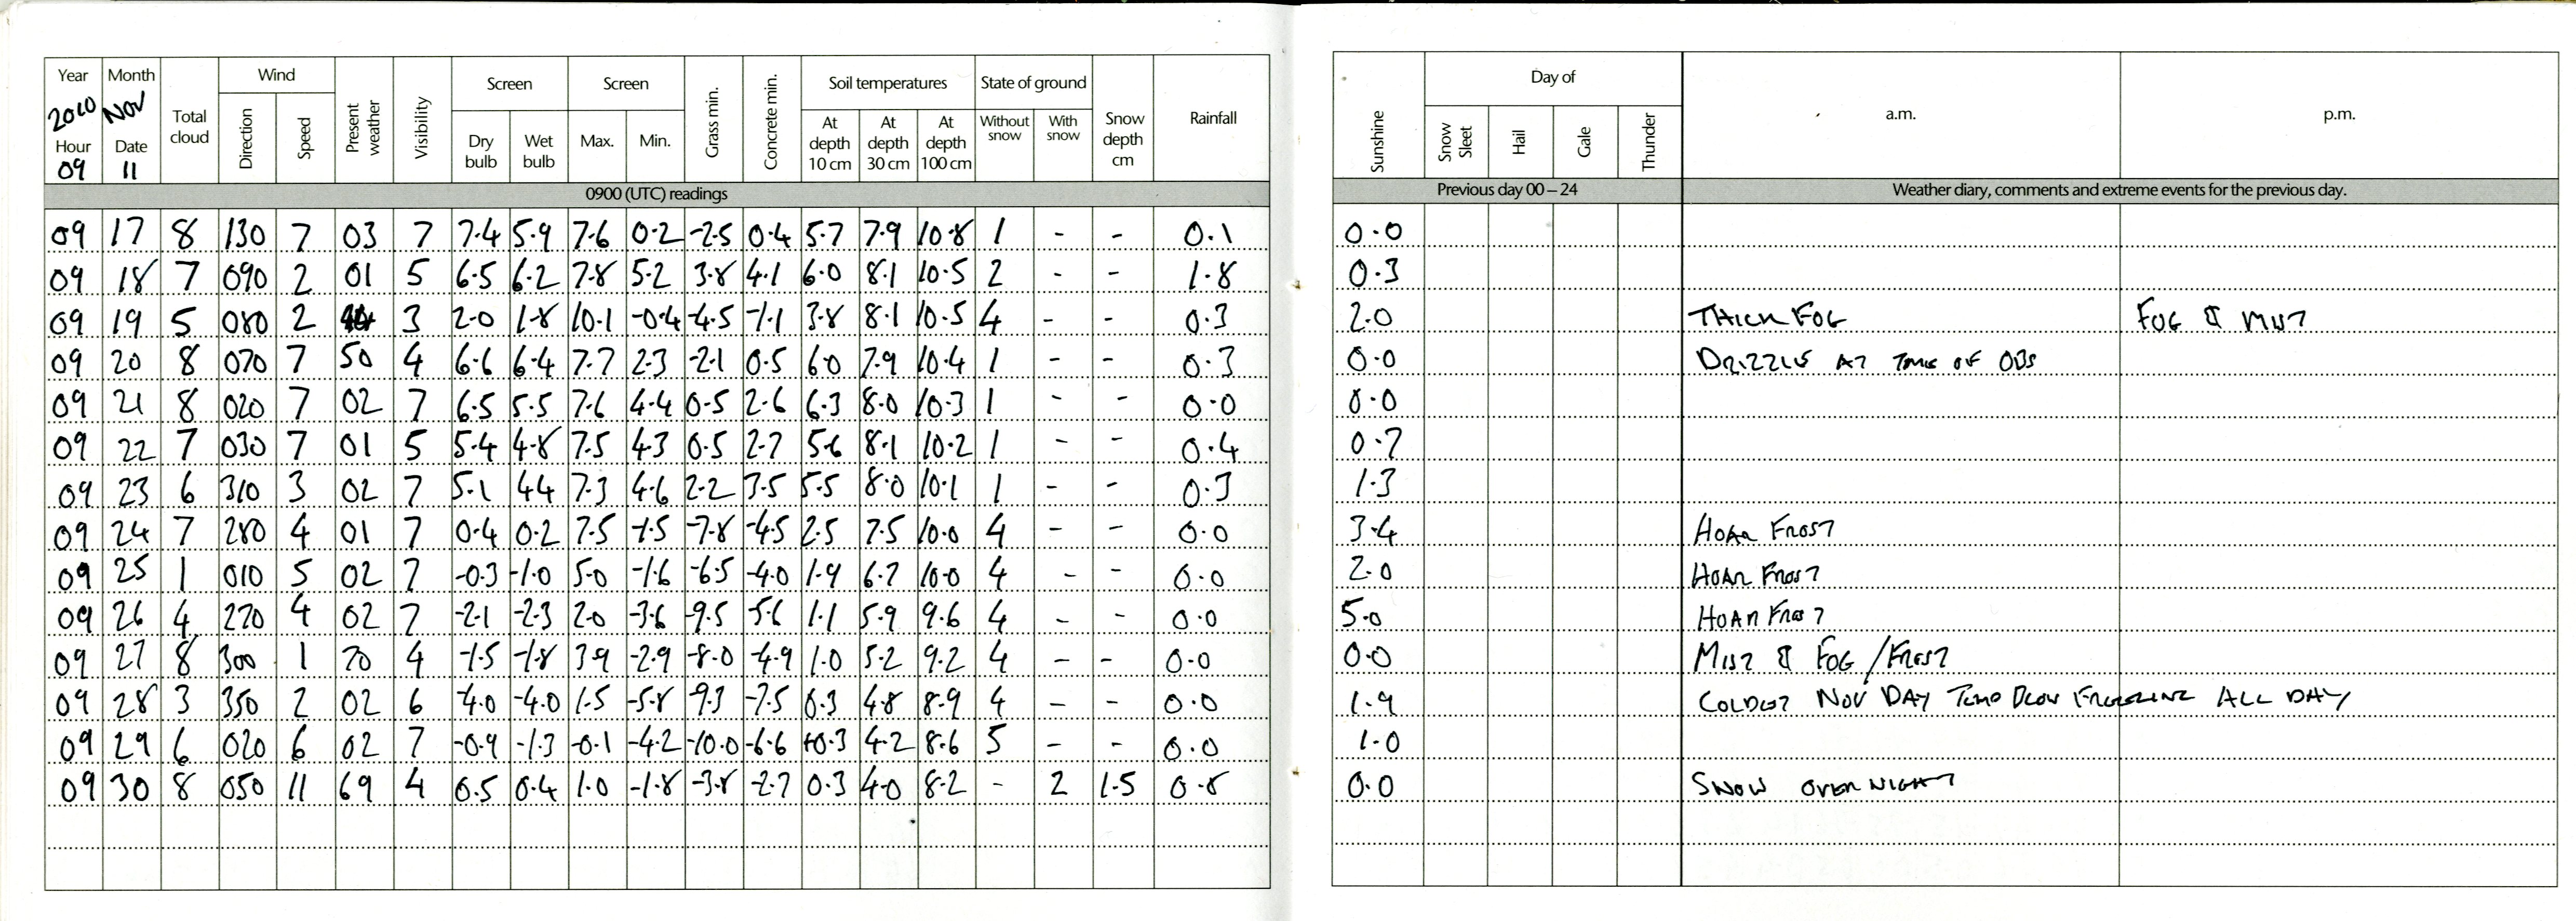 Year Month Total cloud Wind Present weather Visibility Screen Screen Grass min. Concrete min. Soil temperatures State of ground Snow depth cm Rainfall Sunshine Day of a.m. p.m.
2010 NOV Direction Speed Dry bulb Wet bulb Max. Min. At depth 10 cm At depth 30 cm At depth 100 cm Without snow With snow Snow Sleet Hail Gale Thunder
Hour Date
09 11
0900 (UTC) readings Previous day 00 – 24 Weather diary, comments and extreme events for the previous day.
09 17 8 130 7 03 7 7.4 5.9 7.6 0.2 -2.5 0.4 5.7 7.9 10.8 1 - - 0.1 0.0
09 18 7 090 2 01 5 6.5 6.2 7.8 5.2 3.8 4.1 6.0 8.1 10.5 2 - - 1.8 0.3
09 19 5 080 2 3 2.0 1.8 10.1 -0.4 -4.5 -1.1 3.8 8.1 10.5 4 - - 0.3 2.0 THICK FOG FOG & MIST
09 20 8 070 7 50 4 6.6 6.4 7.7 2.3 -2.1 0.5 6.0 7.9 10.4 1 - - 0.3 0.0 DRIZZLE AT TIME OF OBS
09 21 8 020 7 02 7 6.5 5.5 7.6 4.4 0.5 2.6 6.3 8.0 10.3 1 - - 0.0 0.0
09 22 7 030 7 01 5 5.4 4.8 7.5 4.3 0.5 2.7 5.6 8.1 10.2 1 - - 0.4 0.7
09 23 6 310 3 02 7 5.1 44 7.3 4.6 2.2 3.5 5.5 8.0 10.1 1 - - 0.3 1.3
09 24 7 280 4 01 7 0.4 0.2 7.5 -1.5 -7.8 -4.5 2.5 7.5 10.0 4 - - 0.0 3.4 HOAR FROST
09 25 1 010 5 02 7 -0.3 -1.0 5.0 -1.6 -6.5 -4.0 1.9 6.7 10.0 4 - - 0.0 2.0 HOAR FROST
09 26 4 270 4 02 7 -2.1 -2.3 2.0 -3.6 -9.5 -5.6 1.1 5.9 9.6 4 - - 0.0 5.0 HOAR FROST
09 27 8 300 1 70 4 -1.5 -1.8 3.9 -2.9 -8.0 -4.9 1.0 5.2 9.2 4 - - 0.0 0.0 MIST & FOG / FROST
09 28 3 350 2 02 6 -4.0 -4.0 1.5 -5.8 -9.3 -7.5 0.3 4.8 8.9 4 - - 0.0 1.9 COLDEST NOV DAY TEMP BLOW FREEZING ALL DAY
09 29 6 020 6 02 7 -0.9 -1.3 -0.1 -4.2 -10.0 -6.6 +0.3 4.2 8.6 5 - - 0.0 1.0
09 30 8 050 11 69 4 0.5 0.4 1.0 -1.8 -3.8 -2.7 0.3 4.0 8.2 - 2 1.5 0.8 0.0 SNOW OVERNIGHT